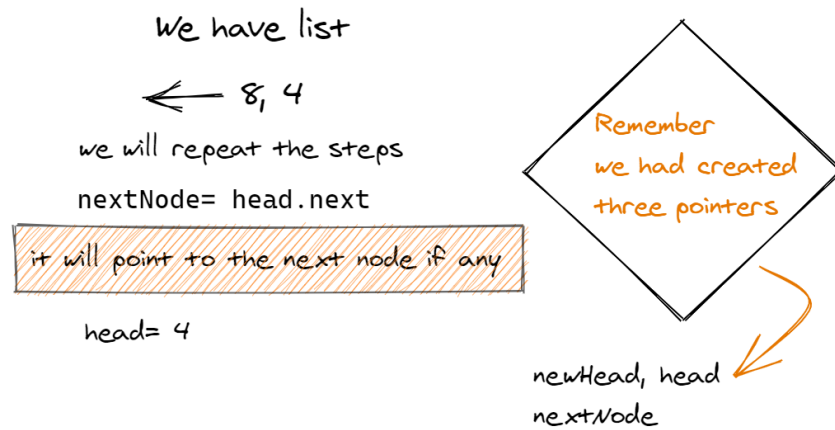 We have list
8, 4
we will repeat the steps
nextNode= head.next
it will point to the next node if any
head= 4
Remember
we had created
three pointers
newHead, head
nextNode